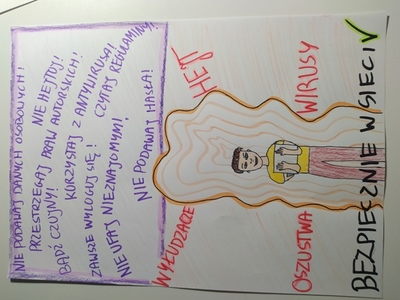 NIE PODAWAJ DANYCH OSOBOWYCH!
NIE HEJTUJ!
PRZESTRZEGAJ PRAW AUTORSKICH!
BĄDŹ CZUJNY!
KORZYSTAJ Z ANTYWIRUSA!
ZAWSZE WYLOGUJ SIĘ!
CZYTAJ REGULAMINY!
NIE UFAJ NIEZNAJOMYM!
NIE PODAWAJ HASŁA!
WYŁUDZACZE
HEJT
OSZUSTWA
WIRUSY
BEZPIECZNIE W SIECI